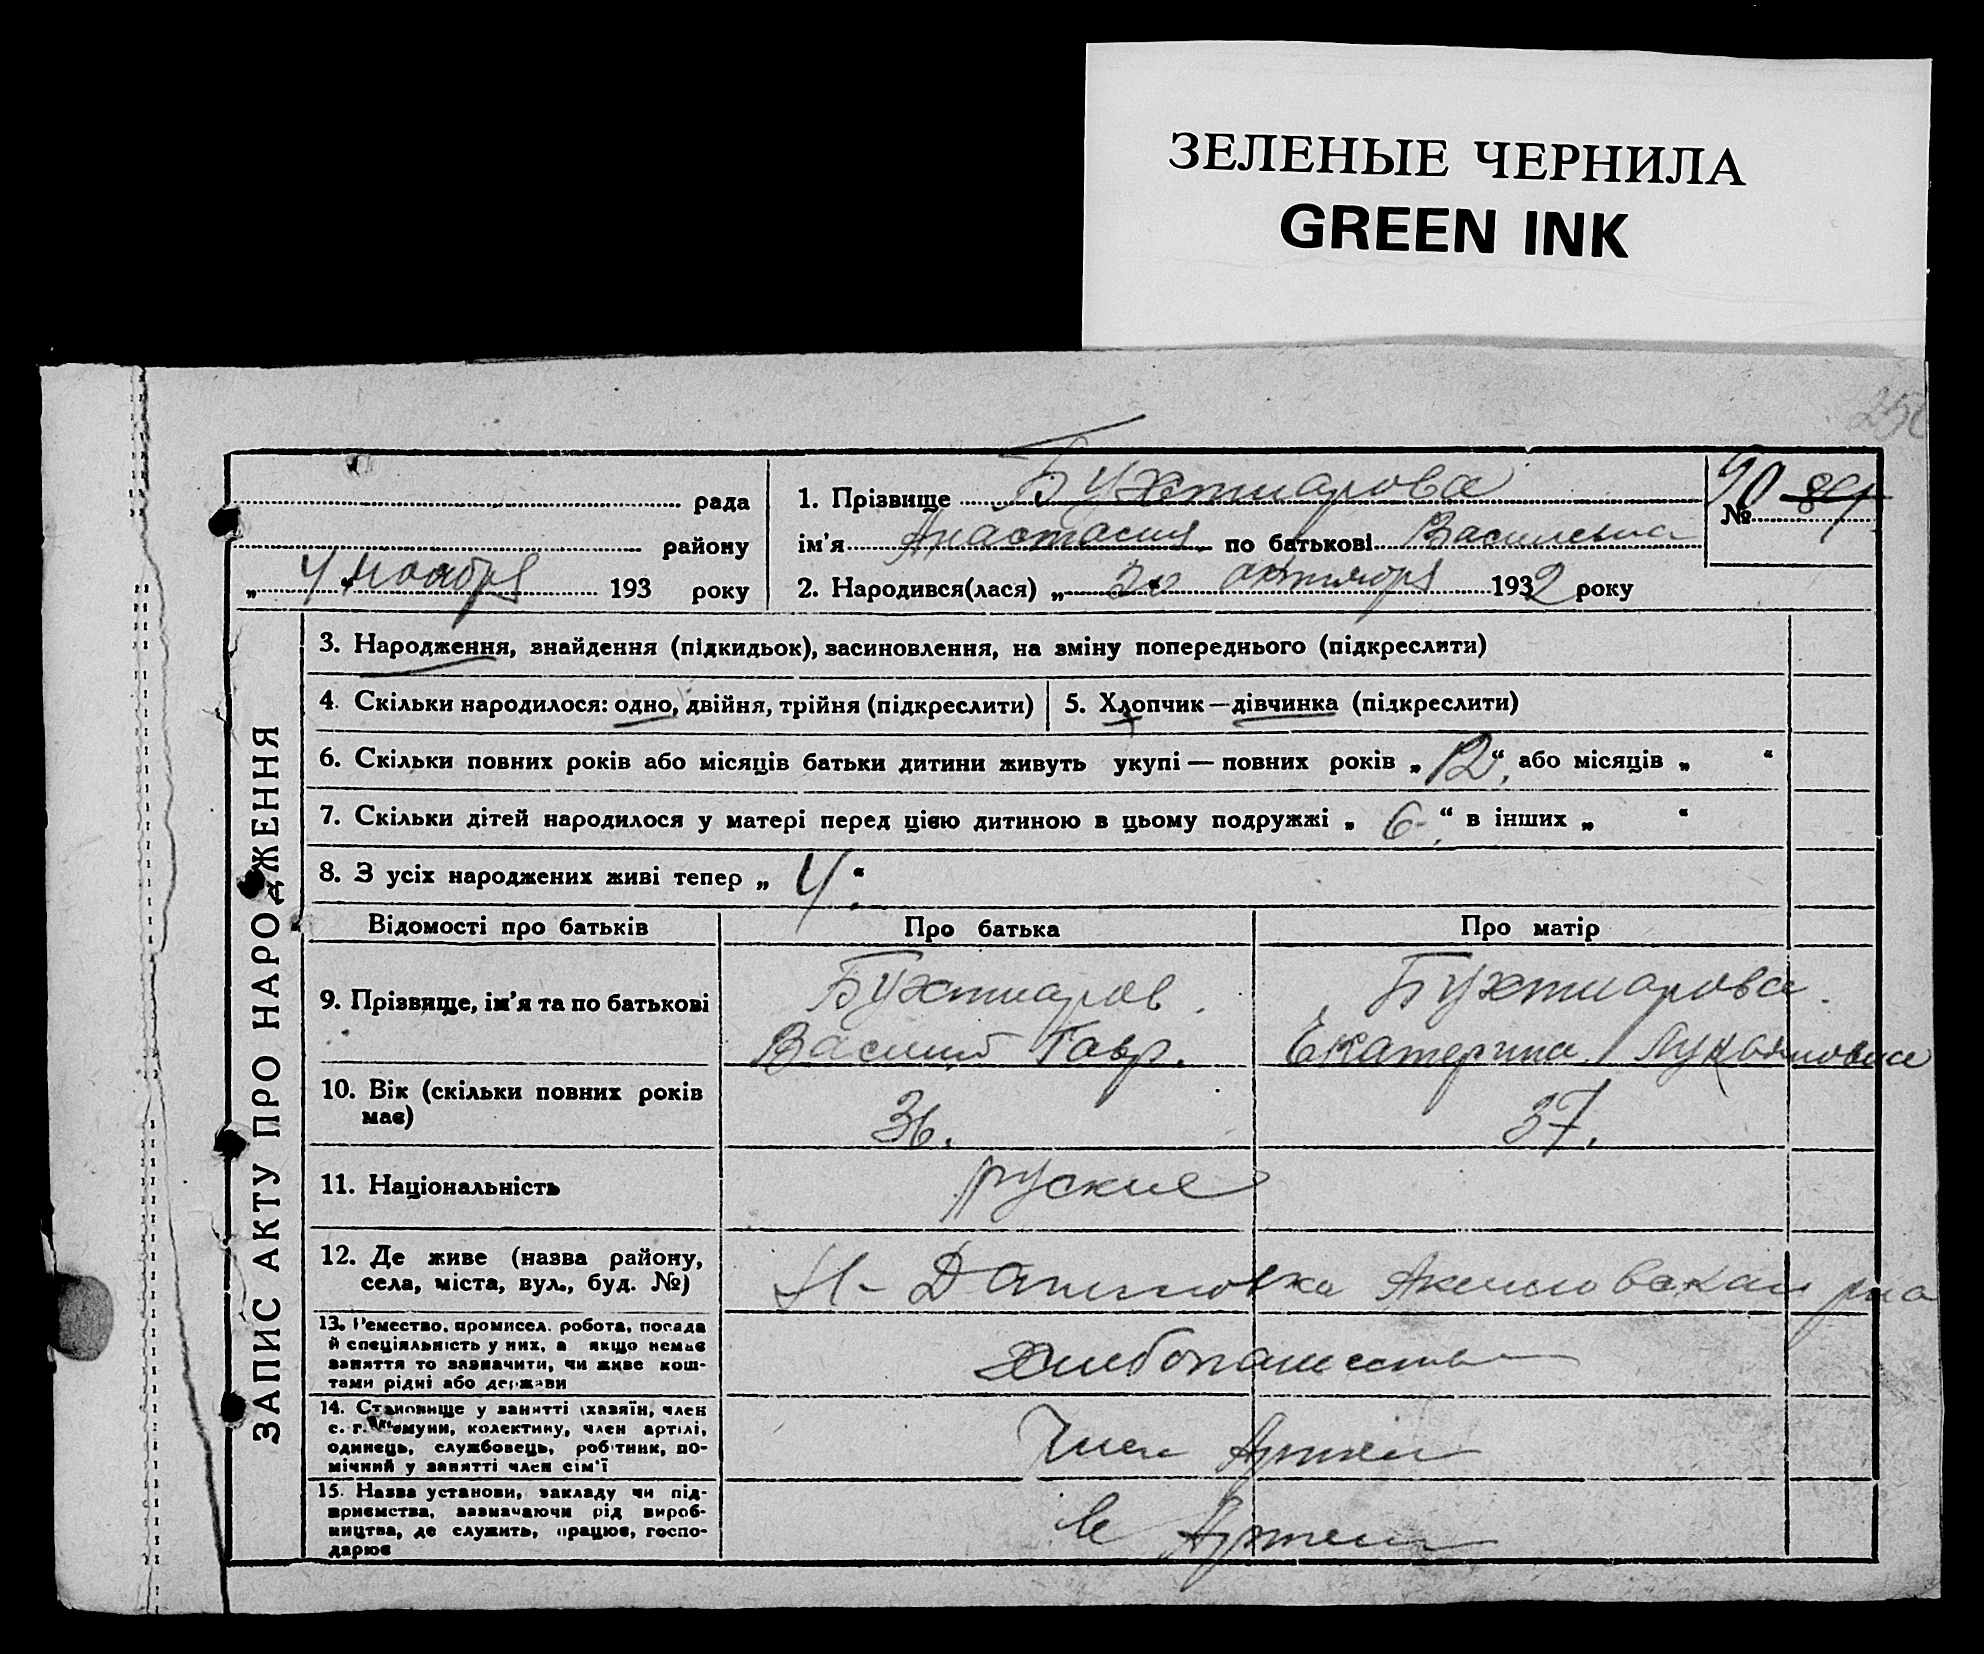 ЗЕЛЕНЫЕ ЧЕРНИЛА
GREEN INK
рада
району
„ 4 “ ноября 193 року
1. Прізвище Бухтиарова
ім'я Анастасия по батькові Василевна
2. Народився(лася) „ октября 1932 року
№ 90 89
ЗАПИС АКТУ ПРО НАРОДЖЕННЯ
3. Народження, знайдення (підкидьок), засиновлення, на зміну попереднього (підкреслити)
4. Скільки народилося: одно, двійня, трійня (підкреслити)
5. Хлопчик — дівчинка (підкреслити)
6. Скільки повних років або місяців батьки дитини живуть укупі — повних років „ 12 “, або місяців „ “
7. Скільки дітей народилося у матері перед цією дитиною в цьому подружжі „ 6 “ в інших „ “
8. З усіх народжених живі тепер „ 4 “
Відомості про батьків
Про батька
Про матір
9. Прізвище, ім'я та по батькові
Бухтиаров
Василий Гавр.
Бухтиарова
Екатерина
10. Вік (скільки повних років
має)
36.
37.
11. Національність
руские
12. Де живе (назва району,
села, міста, вул., буд. №)
Н-
13. Ремество, промисел, робота, посада
й спеціяльність у них, а якщо немає
заняття то зазначити, чи живе кош-
тами рідні або держави
хлебопашество
14. Становище у занятті (хазяїн, член
с.-г. комуни, колективу, член артілі,
одинець, службовець, робітник, по-
мічний у занятті член сім'ї
Член Артели
15. Назва установи, закладу чи під-
приємства, зазначаючи рід вироб-
ництва, де служить, працює, госпо-
дарює
в Артели